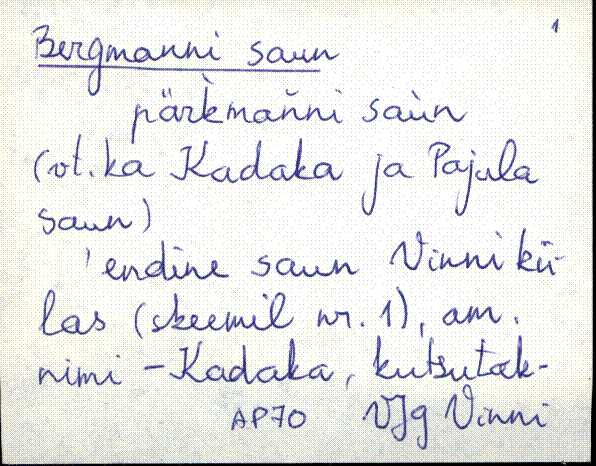 1
Bergmanni saun
pärkmańni saùn
(vt. ka Kadaka ja Pajula
saun)
'endine saun Vinni kü-
las (skeemil nr. 1), am.
nimi - Kadaka, kutsutak-
AP70 VJg Vinni